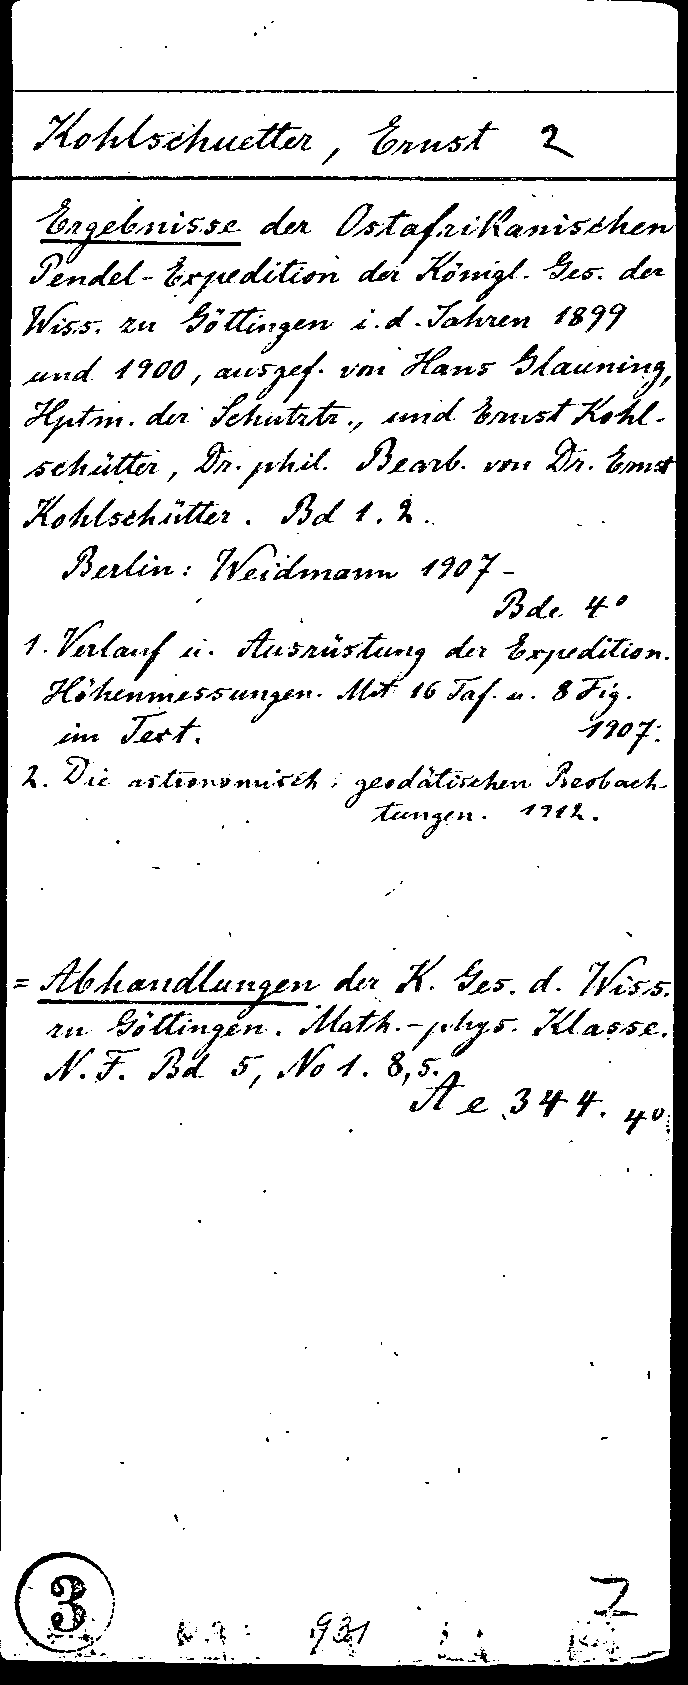 Kohlschuetter, Ernst 2
Ergebnisse der Ostafrikanischen
Pendel-Expedition der Königl. Ges. der
Wiss. zu Göttingen i. d. Jahren 1899
und 1900, ausgef. von Hans Glauning,
Hptm. der Schutztr., und Ernst Kohl-
schütter, Dr. phil. Bearb. von Dr. Ernst
Kohlschütter. Bd 1. 2.
Berlin: Weidmann 1907-
Bde 4°
1. Verlauf u. Ausrüstung der Expedition.
Höhenmessungen. Mit 16 Taf. u. 8 Fig.
im Text. 1907.
2. Die astronomisch-geodätischen Beobach-
tungen. 1912.
= Abhandlungen der K. Ges. d. Wiss.
zu Göttingen. Math.-phys. Klasse.
N. F. Bd 5, No 1. 8,5.
A e 344. 4°
3